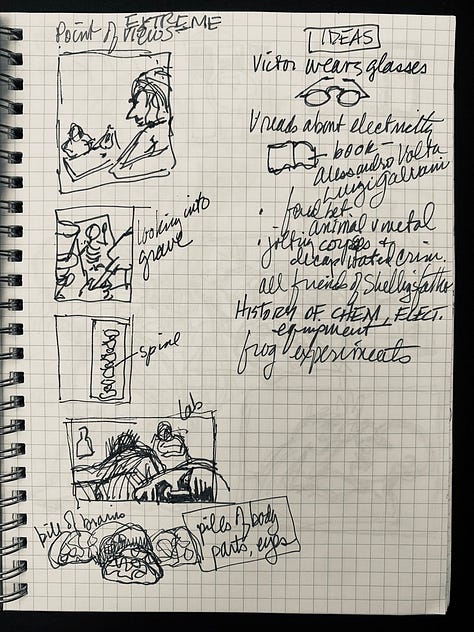 Point of EXTREME
Views
looking into
grave
spine
lab
pile of brains
piles of body
parts, eyes
IDEAS
Victor wears glasses
V reads about electricity
book –
Alessandro Volta
Luigi Galvani
• bet.
animal v metal
• jolting corpses +
decapitated crim.
all friends of Shelley's father
HISTORY OF CHEM, ELECT.
equipment
frog experiments